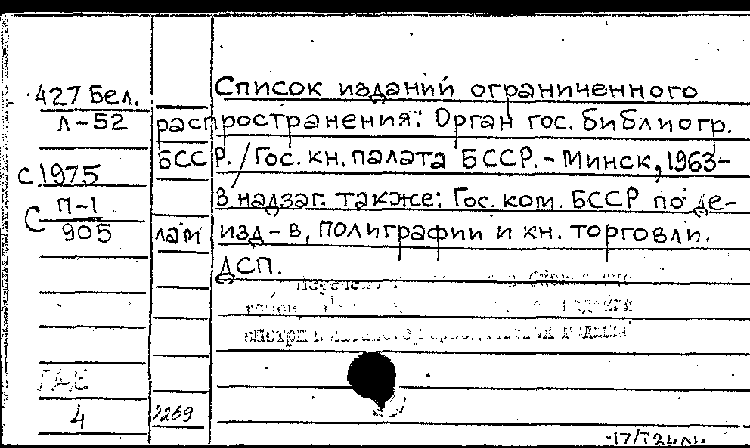 427 Бел.
Л-52
с 1975
С П-1
905
4
2269
Список изданий ограниченного
распространения: Орган гос. библиогр.
БССР. / Гос. кн. палата БССР. - Минск, 1963-
В надзаг. также: Гос. ком. БССР по де-
лам изд-в, полиграфии и кн. торговли.
ДСП.